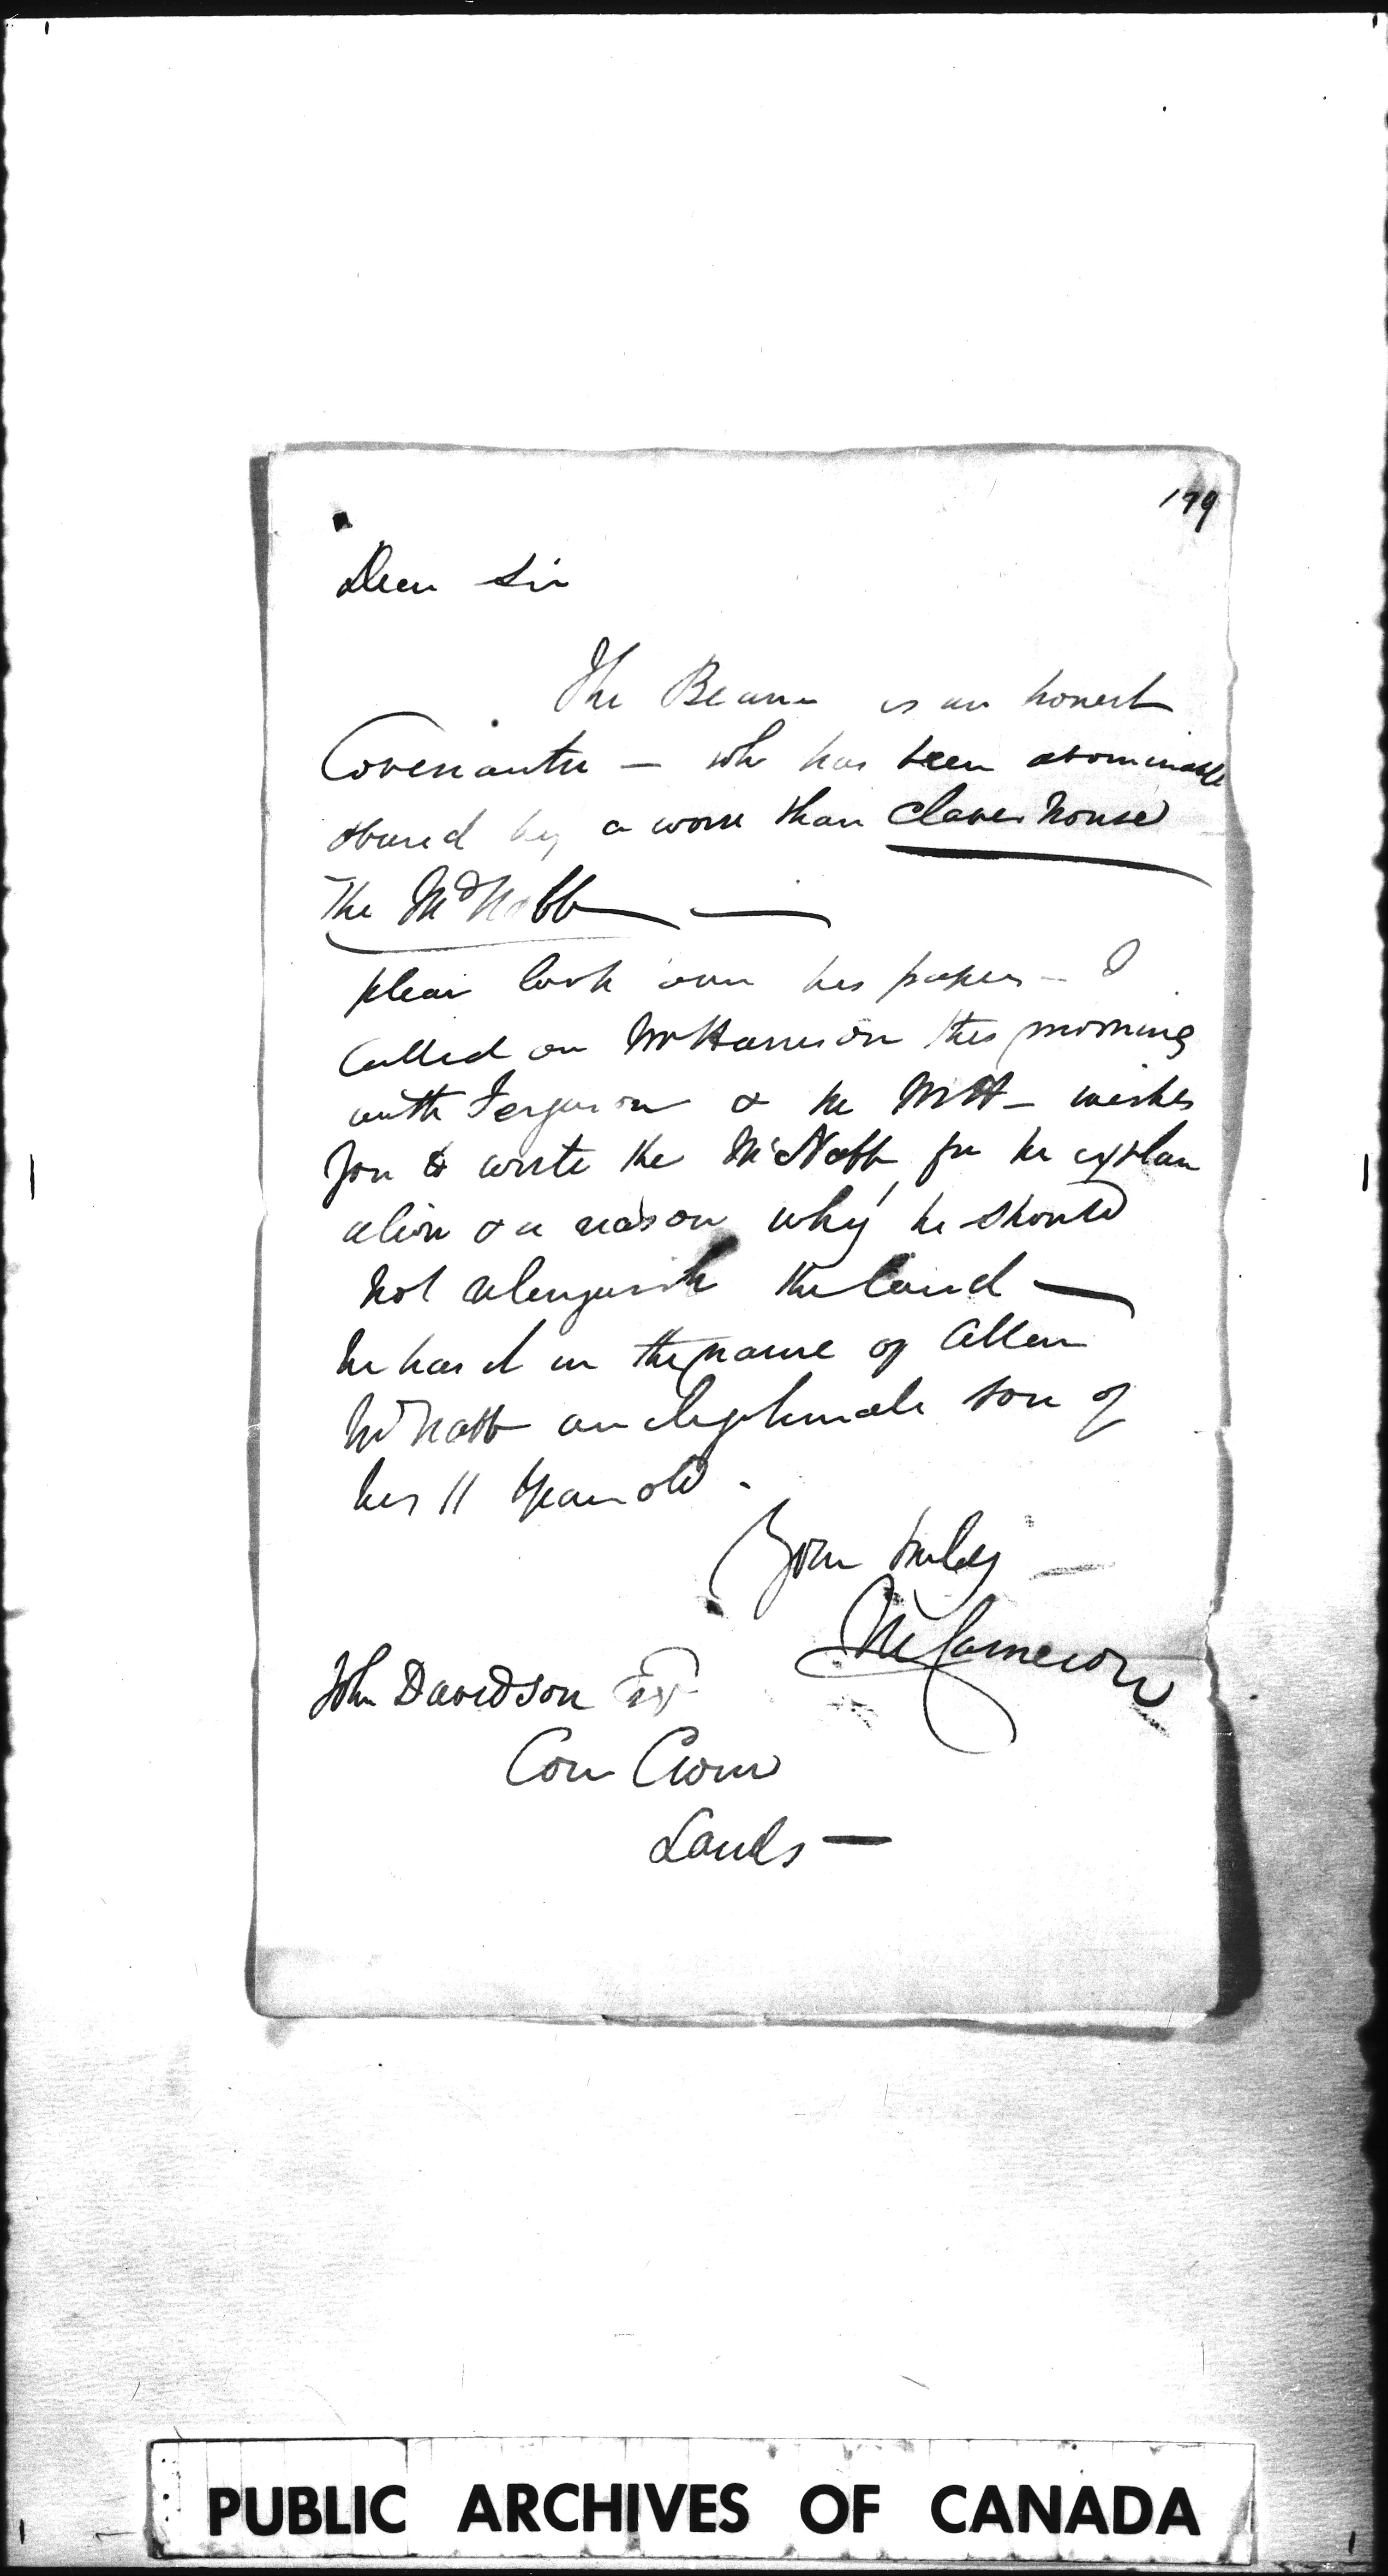 179
Dear Sir
The Bearer is an honest
Covenanter — who has been abominable
abused by a worse than Claverhouse
The McNabb —
please look over his papers — I
Called on Mr Harrison this morning
with Ferguson & he Mr H — wishes
you to write the McNabb for he explan
ation & a reason why he should
not relenquish the land —
he has it in the name of Allan
McNabb an elegitimate son of
his 11 years old .
Yours truly —
M Cameron
John Davidson Esq
Com Crown
Lands —
PUBLIC ARCHIVES OF CANADA